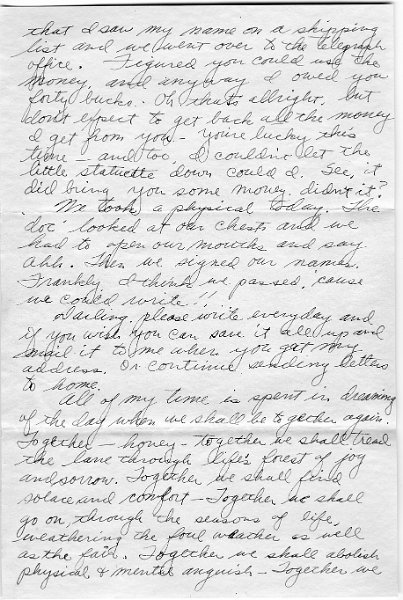 that I saw my name on a shipping
list and we went over to the telegraph
office. Figured you could use the
money, and anyway I owed you
forty bucks. Oh thats allright, but
don't expect to get back all the money
I get from you - you're lucky this
time - and too, I couldn't let the
little statuette down could I. See, it
did bring you some money didn't it?
We took a physical today. The
doc' looked at our chests and we
had to open our mouths and say
ahh. Then we signed our names.
Frankly, I think we passed, 'cause
we could write!!
Darling, please write everyday and
if you wish you can save it all up and
mail it to me when you get my
address. Or continue sending letters
to home.
All of my time is spent in dreaming
of the day when we shall be together again.
Together - honey - together we shall tread
the lane through life's forest of joy
and sorrow. Together we shall find
solace and comfort - Together we shall
go on, through the seasons of life,
weathering the foul weather as well
as the fair. Together we shall abolish
physical & mental anguish - Together we